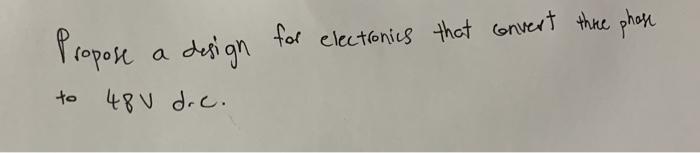 Propose a design for electronics that convert three phase
to 48V d.c.